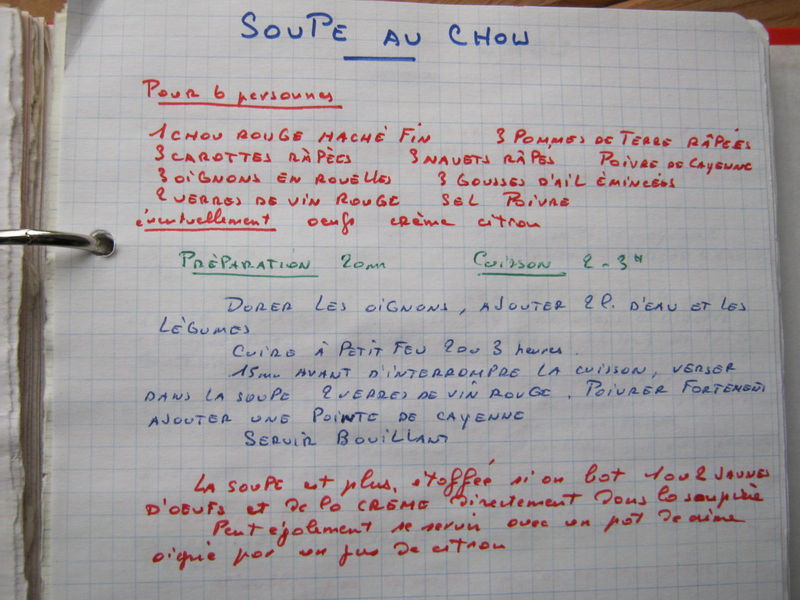 SOUPE AU CHOW
Pour 6 personnes
1 CHOU ROUGE HACHÉ FIN 3 POMMES DE TERRE RÂPÉES
3 CAROTTES RÂPÈES 3 NAVETS RÂPÉS POIVRE DE CAYENNE
3 OIGNONS EN ROUELLES 3 GOUSSES D'AIL ÉMINCÉES
2 VERRES DE VIN ROUGE SEL POIVRE
éventuellement oeufs crème citron
PRÉPARATION 20mn CUISSON 2 - 3H
DORER LES OIGNONS, AJOUTER 2 l. D'EAU ET LES
LÉGUMES
CUIRE À PETIT FEU 2 OU 3 heures.
15mn AVANT D'INTERROMPRE LA CUISSON, VERSER
DANS LA SOUPE 2 VERRES DE VIN ROUGE. POIVRER FORTEMENT
AJOUTER UNE POINTE DE CAYENNE
SERVIR BOUILLANT
LA SOUPE est plus étoffée si on bat 1 ou 2 JAUNES
D'OEUFS et de la CRÈME Directement Dans la soupière
Peut également se servir avec un pot de crème
aigrie par un jus de citron